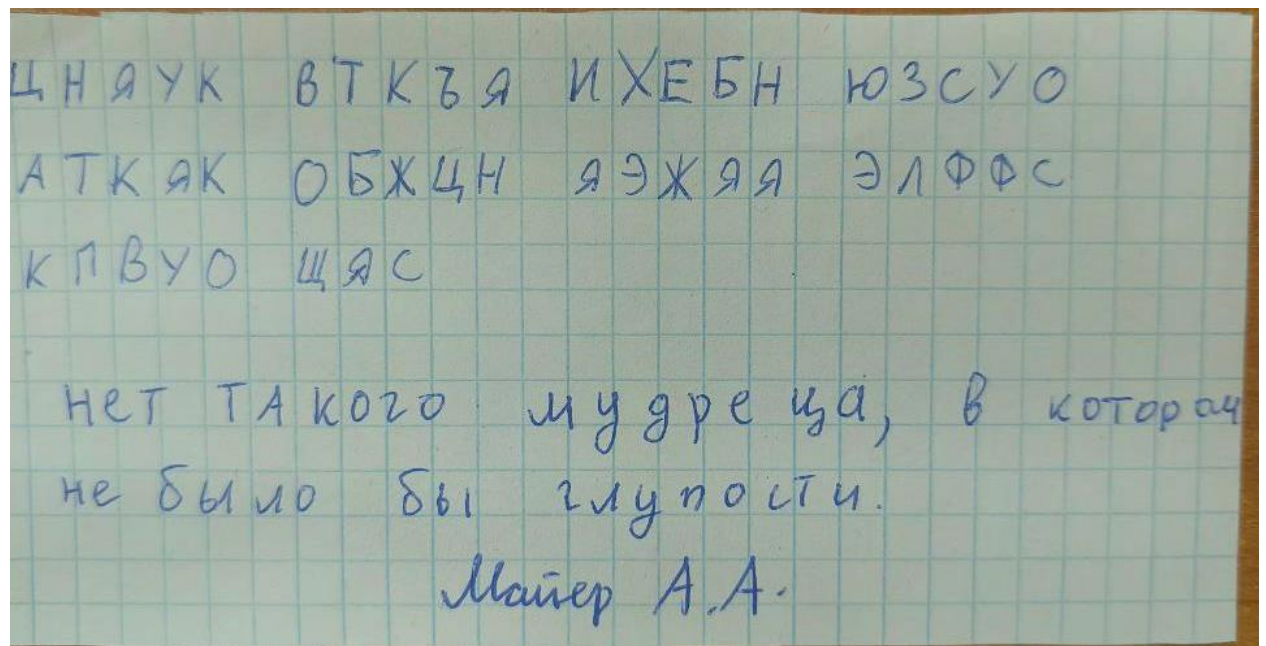 ЦНЯУК ВТКЪЯ ИХЕБН ЮЗСУО
АТКЯК ОБЖЦН ЯЭЖЯЯ ЭЛФФС
КПВУО ЩЯС
нет такого мудреца, в котором
не было бы глупости.
Майер А.А.